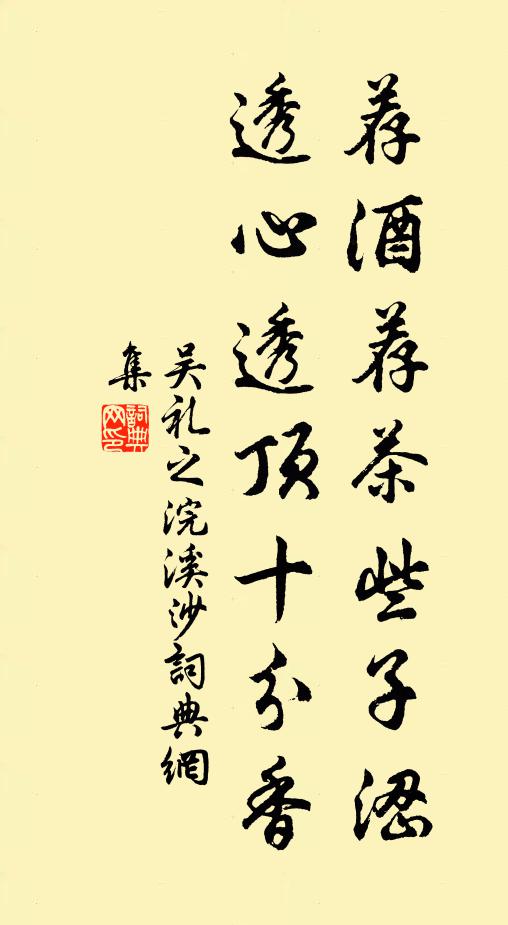 荐酒荐茶些子涩
透心透顶十分香
吴礼之浣溪沙詞典網
集
詞典网印